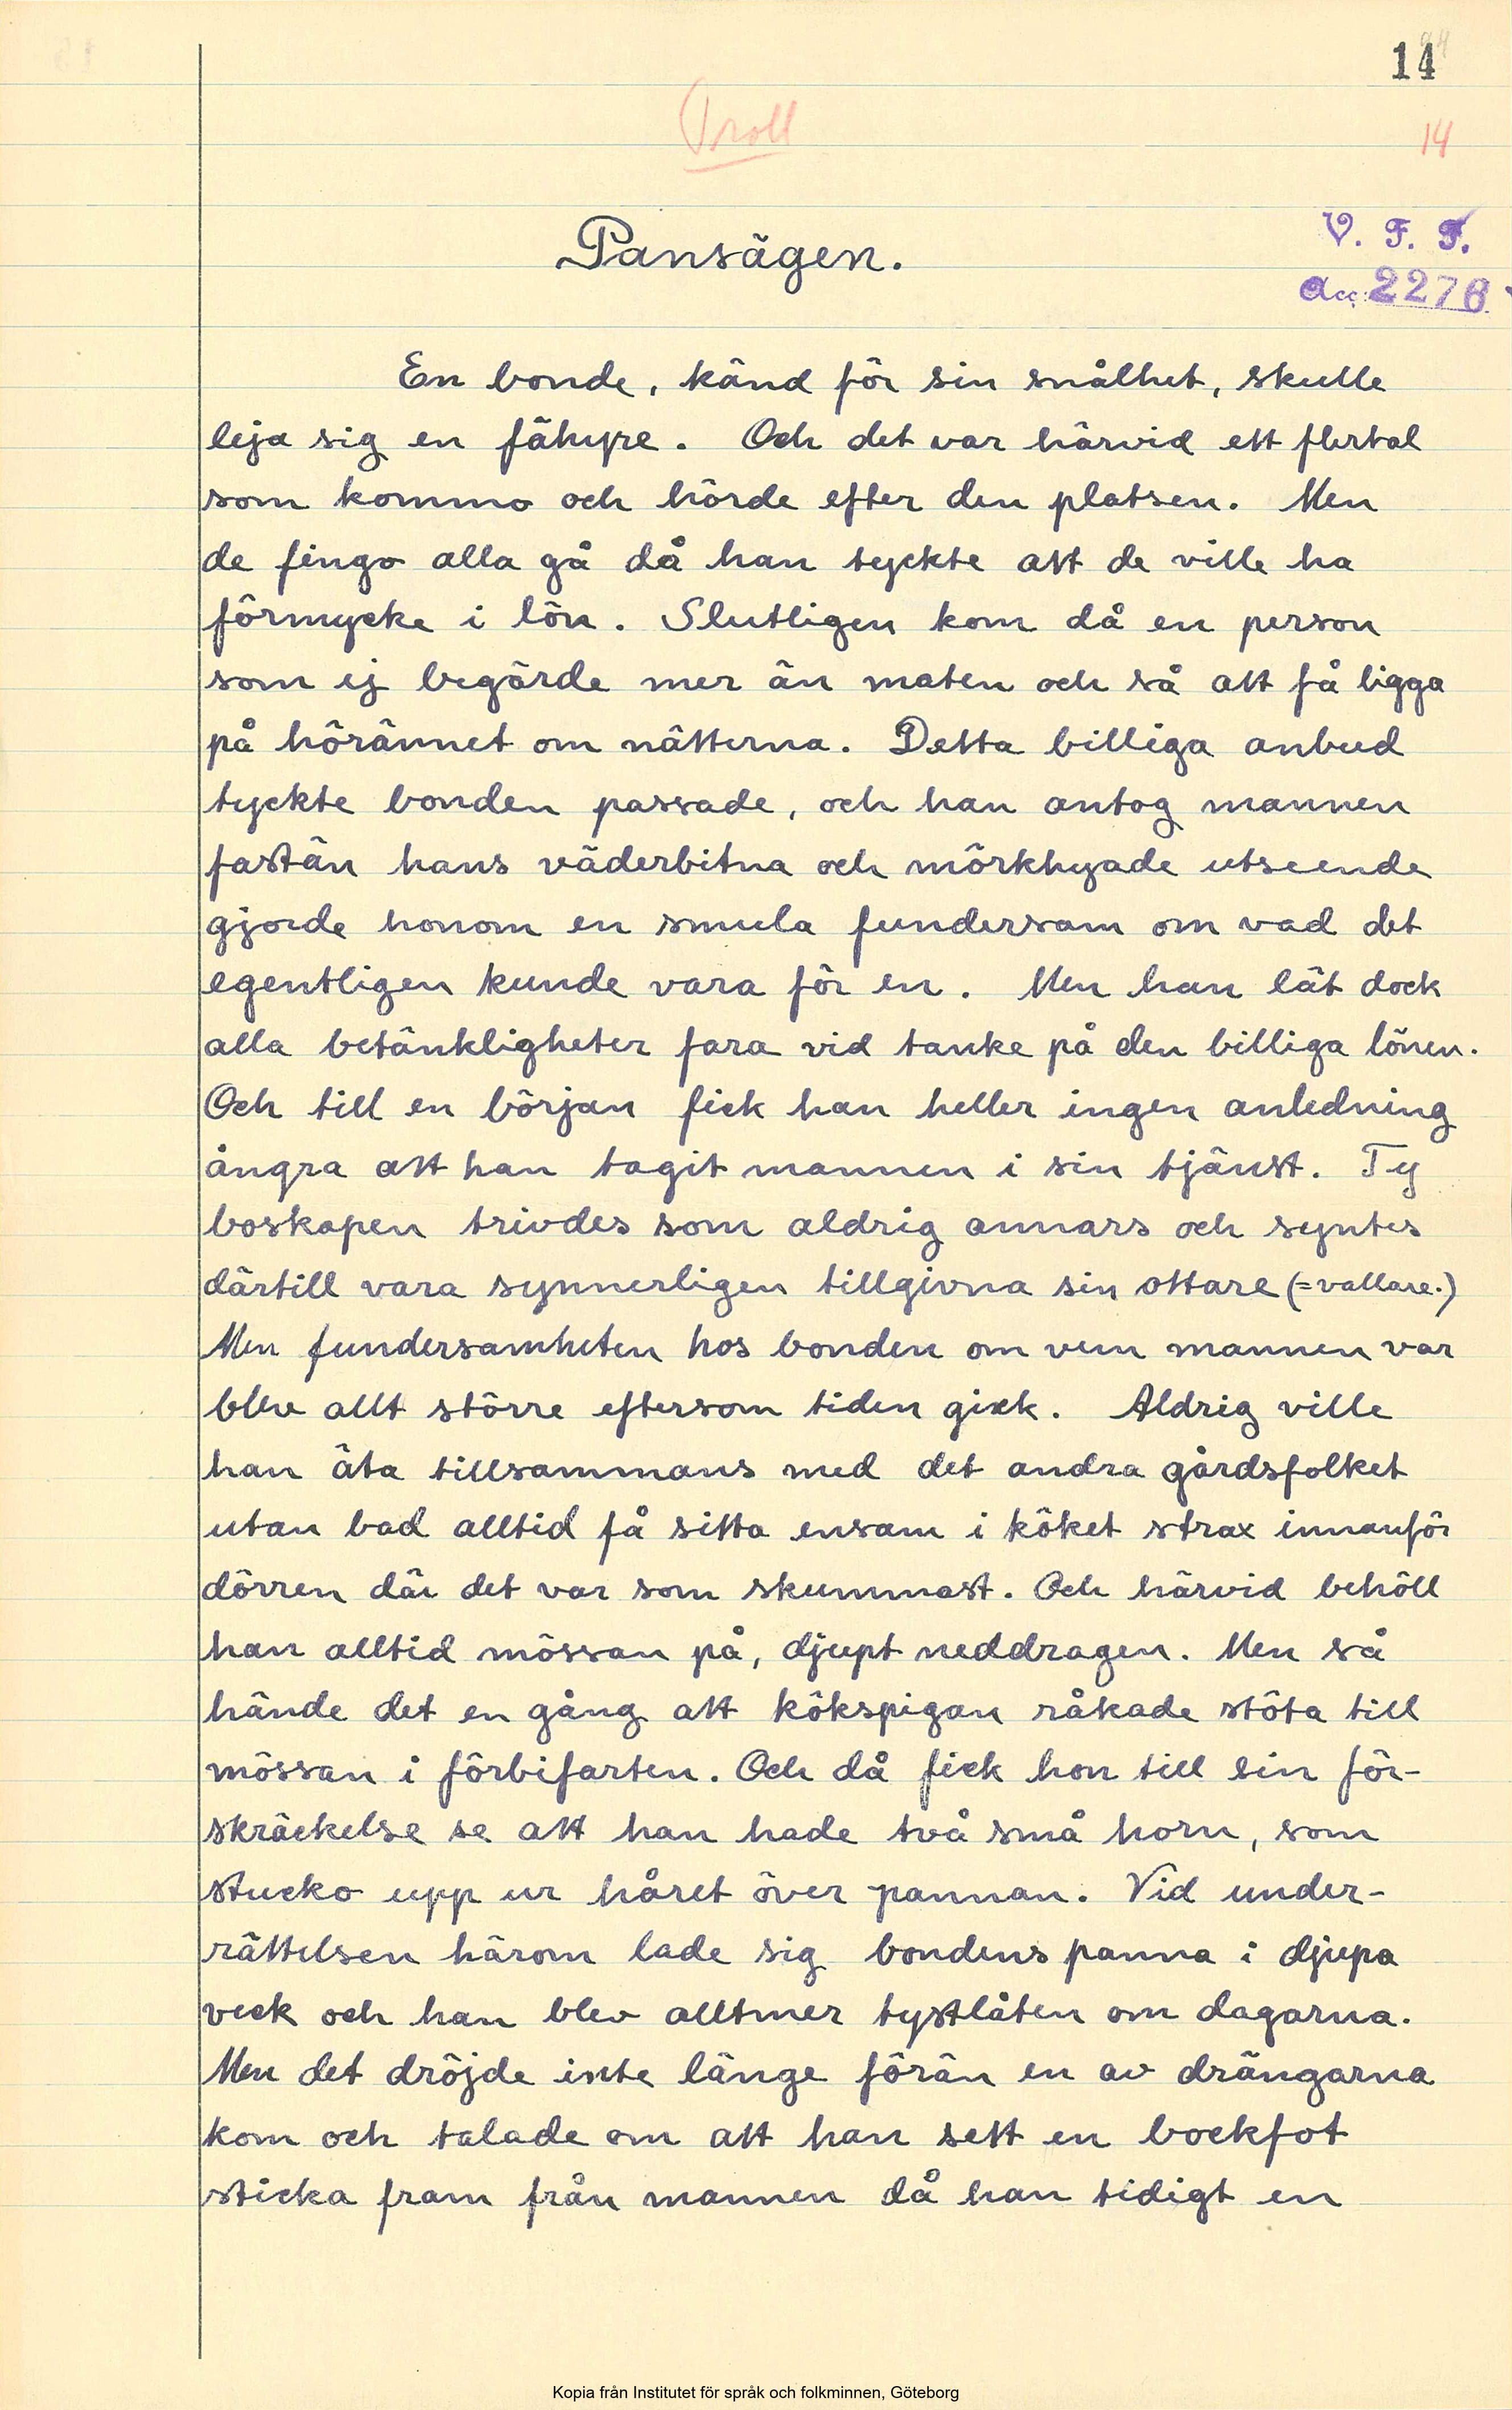 14
Troll
14
Pansägen.
V. F. F.
Acc. 2276
En bonde, känd för sin snålhet, skulle
leja sig en fähyre. Och det var härvid ett flertal
som kommo och hörde efter den platsen. Men
de fingo alla gå då han tyckte att de ville ha
förmycke i lön. Slutligen kom då en person
som ej begärde mer än maten och så att få ligga
på hörännet om nätterna. Detta billiga anbud
tyckte bonden passade, och han antog mannen
fastän hans väderbitna och mörkhyade utseende
gjorde honom en smula fundersam om vad det
egentligen kunde vara för en. Men han lät dock
alla betänkligheter fara vid tanke på den billiga lönen.
Och till en början fick han heller ingen anledning
ångra att han tagit mannen i sin tjänst. Ty
boskapen trivdes som aldrig annars och syntes
därtill vara synnerligen tillgivna sin ottare (=vallare.)
Men fundersamheten hos bonden om vem mannen var
blev allt större eftersom tiden gick. Aldrig ville
han äta tillsammans med det andra gårdsfolket
utan bad alltid få sitta ensam i köket strax innanför
dörren där det var som skummast. Och härvid behöll
han alltid mössan på, djupt neddragen. Men så
hände det en gång att kökspigan råkade stöta till
mössan i förbifarten. Och då fick hon till sin för-
skräckelse se att han hade två små horn, som
stucko upp ur håret över pannan. Vid under-
rättelsen härom lade sig bondens panna i djupa
veck och han blev alltmer tystlåten om dagarna.
Men det dröjde inte länge förän en av drängarna
kom och talade om att han sett en bockfot
sticka fram från mannen då han tidigt en
Kopia från Institutet för språk och folkminnen, Göteborg